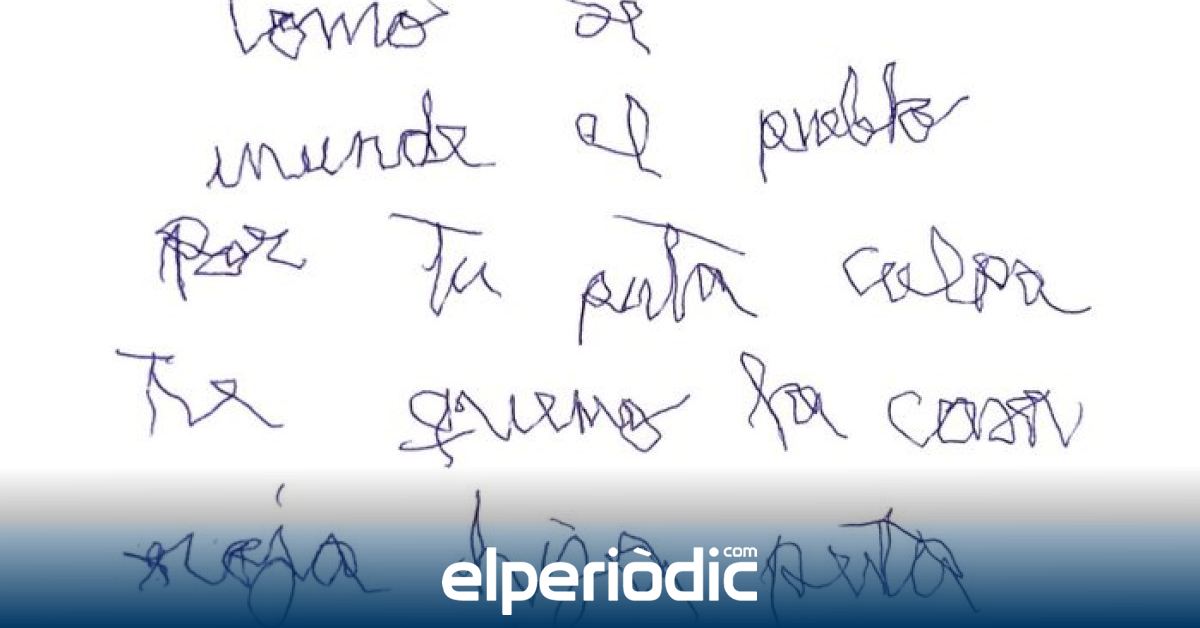 Como se
inunde el pueblo
Por Tu puta culpa
Te quemo la casa
vieja hija puta
elperiòdic.com